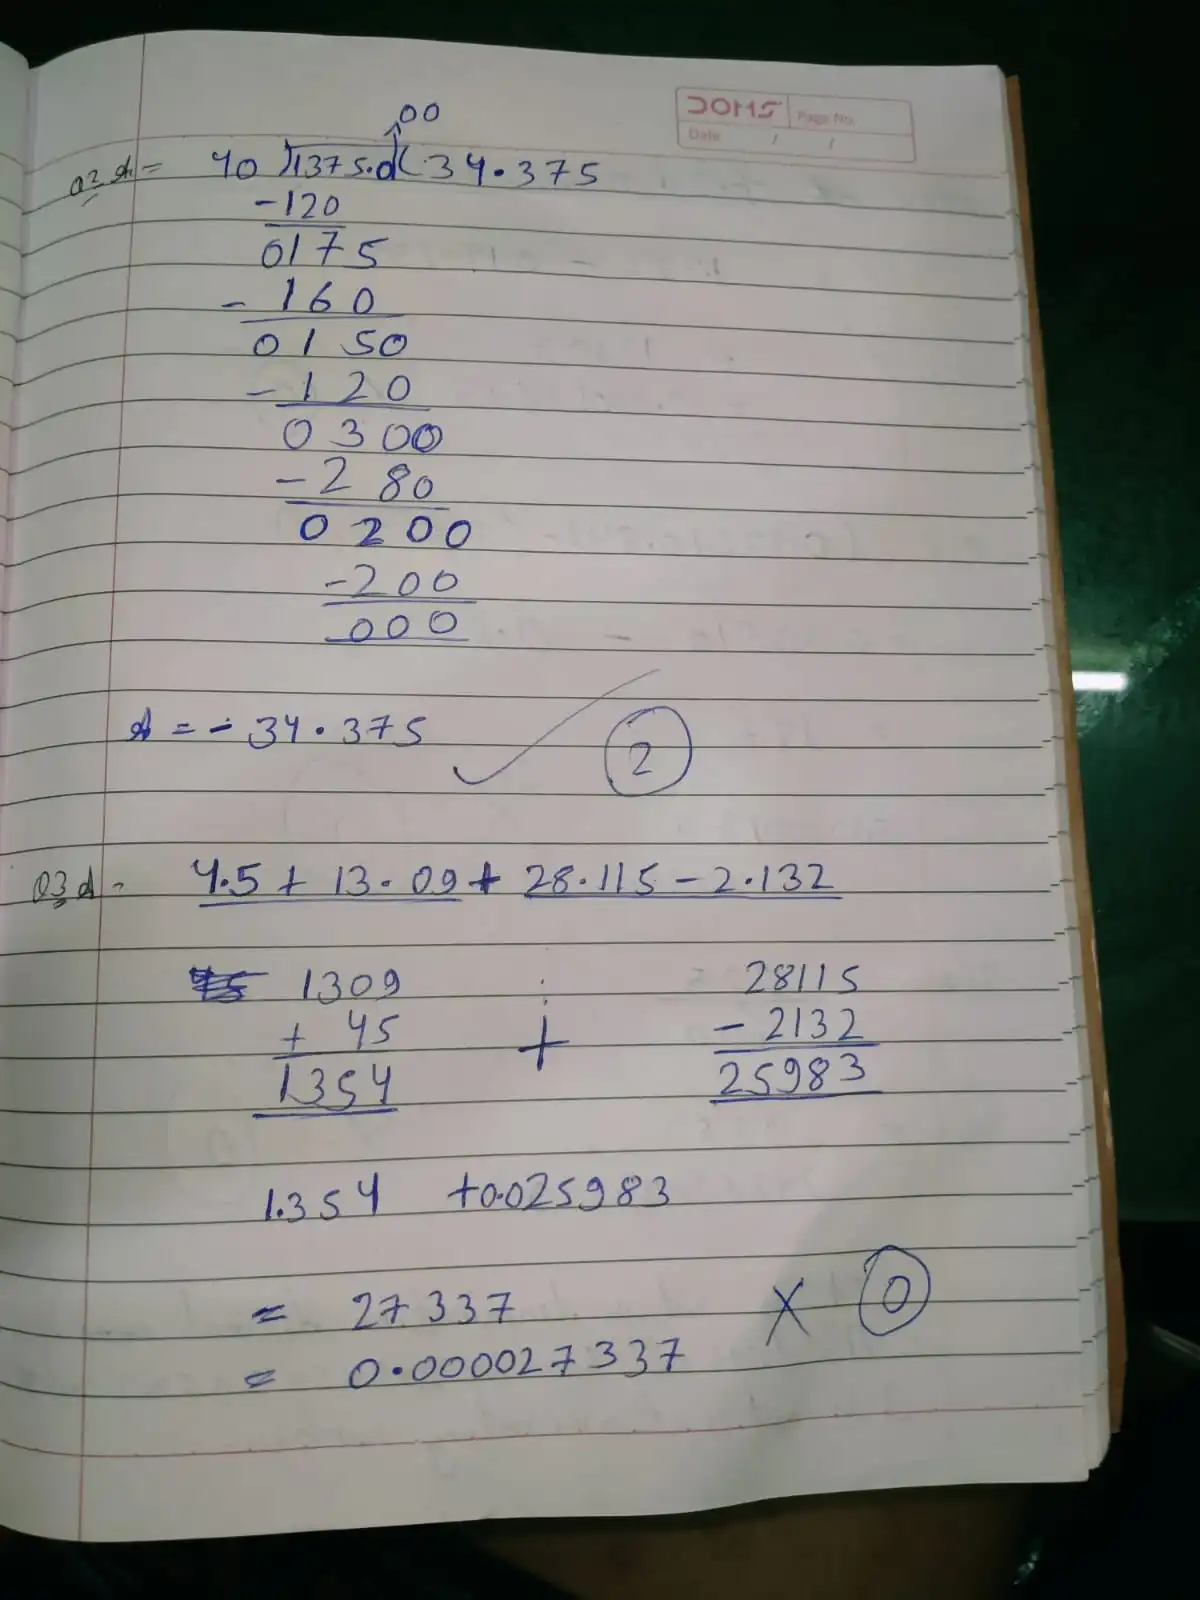 DOMS Page No.
Date / /
00
Q2 A = 40 ) 1375.0 ( 34.375
-120
0175
- 160
0150
- 120
0300
- 280
0200
-200
000
A = - 34.375
2
Q3 A - 4.5 + 13.09 + 28.115 - 2.132
1309 28115
+ 45 + - 2132
1354 25983
1.354 +0.025983
= 27337
X 0
= 0.000027337